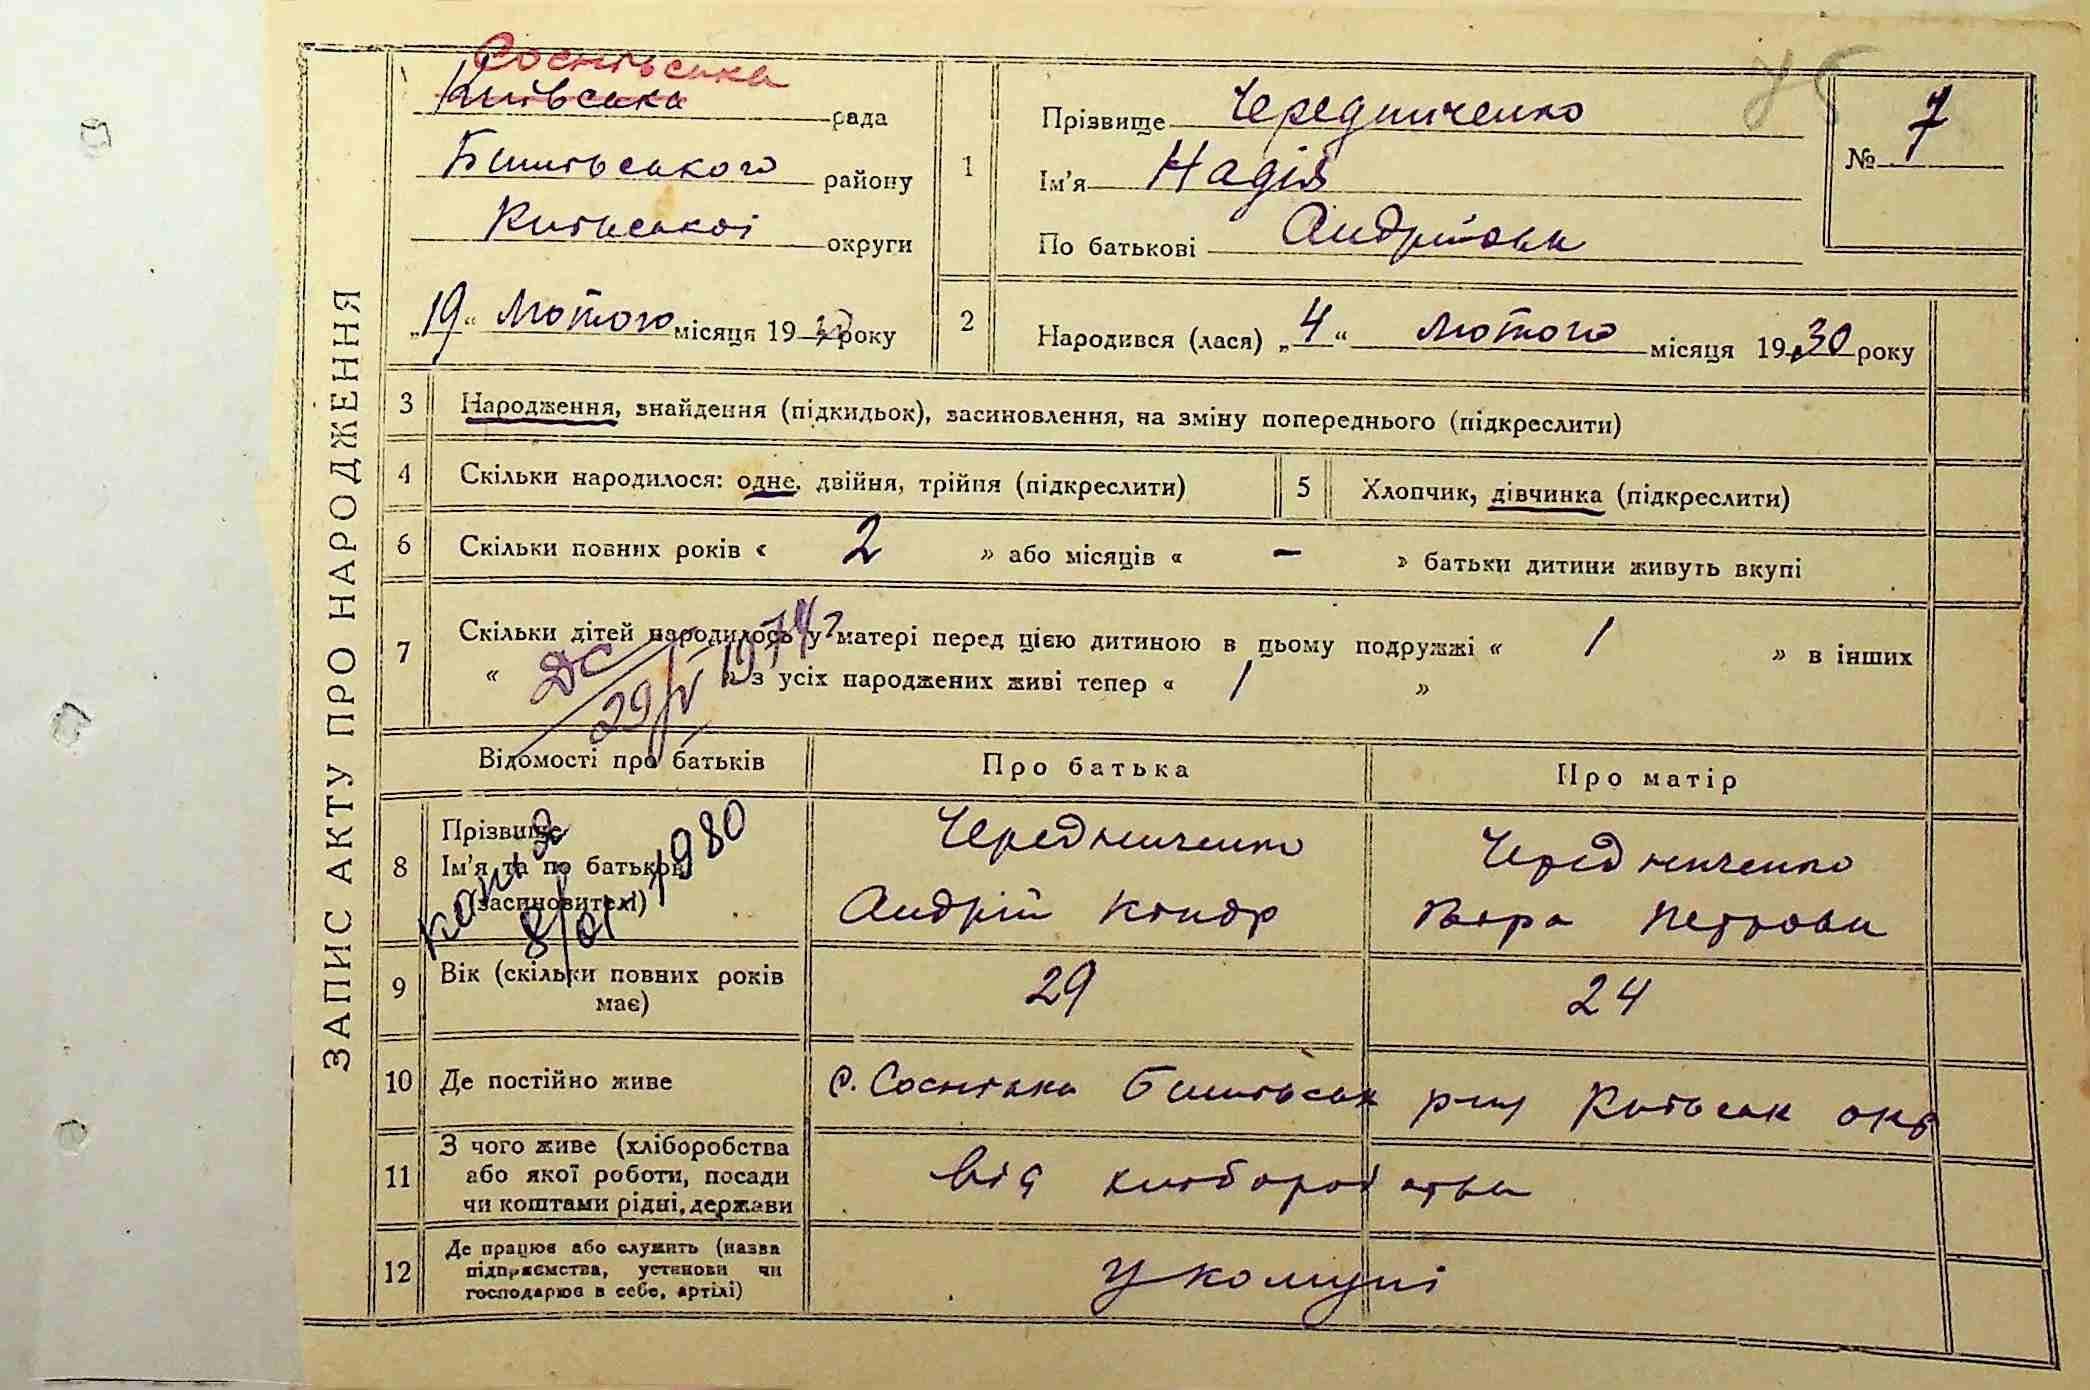 ЗАПИС АКТУ ПРО НАРОДЖЕННЯ
Соснівська
Київська рада
Бишівського району
Київської округи
„19“ Лютого місяця 1930 року
1
Прізвище Чередниченко
Ім'я Надія
По батькові Андріївна
№ 7
2
Народився (лася) „4“ Лютого місяця 1930 року
3 Народження, знайдення (підкидьок), засиновлення, на зміну попереднього (підкреслити)
4 Скільки народилося: одне, двійня, трійня (підкреслити)
5 Хлопчик, дівчинка (підкреслити)
6 Скільки повних років « 2 » або місяців « – » батьки дитини живуть вкупі
7 Скільки дітей народилось у матері перед цією дитиною в цьому подружжі « 1 » в інших
« » з усіх народжених живі тепер « 1 »
ДС
29/IV 1974
Відомості про батьків Про батька Про матір
8 Прізвище
Ім'я та по батькові
(засиновителі)
8/01 1980
Чередниченко
Андрій Кондр
Чередниченко
Петровн
9 Вік (скільки повних років
має)
29
24
10 Де постійно живе
с. Соснівка Бишівськ р-ну Київськ окр
11 З чого живе (хліборобства
або якої роботи, посади
чи коштами рідні, держави
від хліборобства
12 Де працює або служить (назва
підприємства, установи чи
господарює в себе, артілі)
у комуні